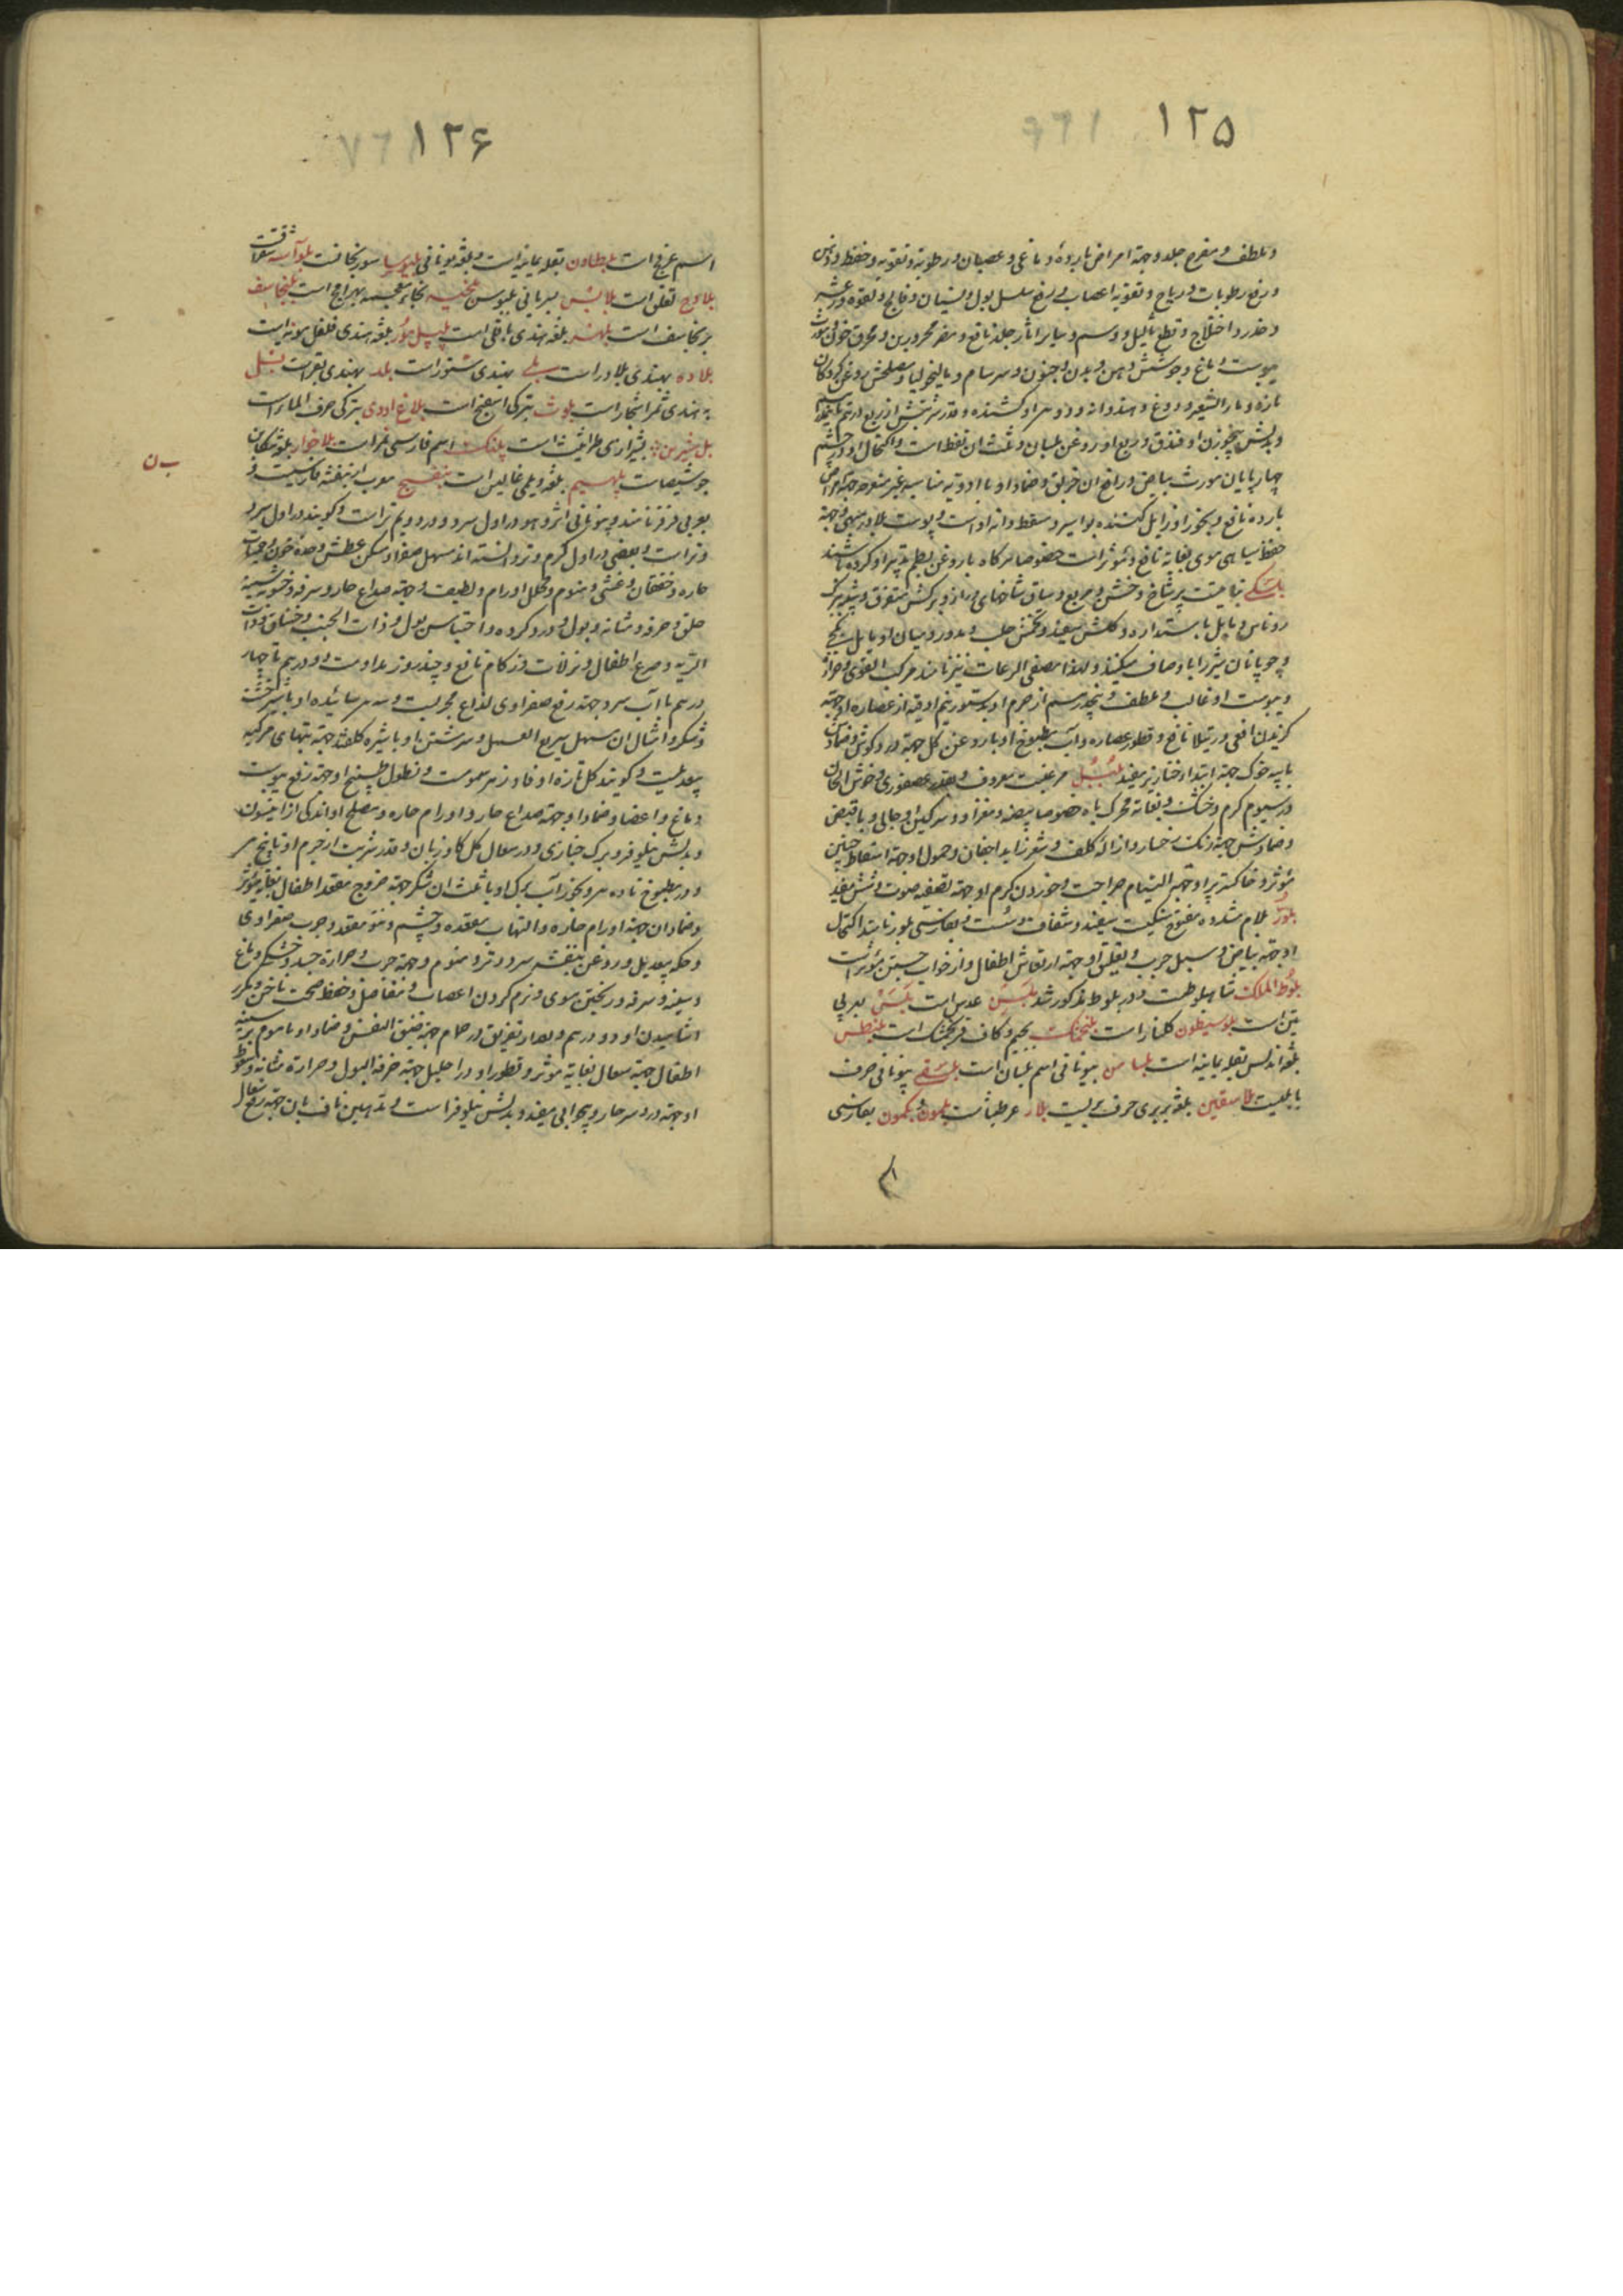 ۱۲۵
و ملطف و مقرح جلد و جهة امراض بارده دماغی و عصبانی و رطوبة و تقویه و حفظ و ذهن
و رفع رطوبات و ریاح و تقویة اعصاب و رفع سلسل بول و نسیان و فالج و لقوه و رعشه
و خدر و اختلاج و قطع ثآلیل و وسم و سایر اثار جلد نافع و مضر محرورین و محرق خون و مورث
یبوست دماغ و جوشش دهن و بدن و جنون و سرسام و مالیخولیا و مصلحش روغن گردکان
تازه و ماء الشعیر و دوغ و هندوانه و دو مر او کشنده و قدر شربتش از ربع درهم تا نیم
و بدلش پنج وزن او فندق و ربع او روغن بلسان و ثلث ان نفط است و اکتحال او در چشم
چهارپایان مورث بیاض و رافع ان خربق و ضماد او با ادویه مناسبه غیر متقرحه جهة امراض
بارده نافع و بخور او زایل کننده بواسیر و مسقط دانه او است و پوست بلادر جهة
حفظ سیاهی موی بغایة نافع و مؤثر است خصوصا هر گاه با روغن بطم تدبیر او کرده باشند
بلسکی نباتیست پر شاخ و خشن و مربع و ساق شاخهای دراز و برکش متفرق و شبیه ببرک
روناس و مایل باستداره و کلش سفید و تخمش صلب و مدور و میان او مایل بکجی
و چوپانان شیر را با او صاف میکنند و لهذا مصفی الرعات نیز نامند مرکب القوی و حرارة
و یبوست او غالب و ملطف و پنج درهم از جرم او بدستور نیم اوقیه از عصاره او جهة
کزیدن افعی و رتیلا نافع و قطور عصاره و آب مطبوخ او با روغن کل جهة درد کوش و ضماد ان
با پیه خوک جهة ابتداء خنازیر مفید بلبل مرغیست معروف و بقدر عصفوری و خوش الحان
در سیوم کرم و خشک و بغایة محرک باه خصوصا بیضه و مغز او و سرکین او جالی و با قبض
و ضمادش جهة رنک رخسار و ازاله کلف و شعر زاید اجفان و حمول او جهة اسقاط جنین
مؤثر و خاکستر پر او جهة التیام جراحت و خوردن کرم او جهة تصفیه صوت و شش مفید
بلور بلام مشدده مفتوح سنکیست سفید و شفاف و سست و بفارسی بلور نامند اکتحال
او جهة بیاض و سبل و جرب و تعلیق او جهة ارتعاش اطفال و از خواب جستن مؤثر است
بلوط الملک شاهبلوط است و در بلوط مذکور شد بلسن عدس است بلس بعربی
تین است بلوسیطون کلنار است بلنجمشک بجیم و کاف فرنجمشک است بلنطس
بلغة اندلس بقله یمانیه است بلسامن بیونانی اسم بلسان است بلسقی بیونانی حرف
بابلیست بلاسقین بلغة بربری حرف بریست بلار عرطنیثا است بلمون و بکمون بفارسی
۱۲۶
اسم عرفج است بلیطاون بقله یمانیه است و بلغة یونانی بلبوسیا سورنجانست بلوآسه سقرقت
بلاوج تفلق است بلابس بسریانی بلبوس بلخیه بخاء معجمه بهرامج است بلنجاسف
برنجاسف است بلهنر بلغة هندی باقی است پلپل مور بلغة هندی فلفل مویه است
بلاده بهندی بلادر است بلی بهندی سنور است بلد بهندی بقر است بنبل
به هندی ثمر اشجار است بلوث بترکی اسفنج است بلاغ اوودی بترکی حرف الماء است
بل شیرین بشیرازی طراثیث است پلنک اسم فارسی نمر است بلاخوار بلغة تنکابن
جوشیصا است پلهیم بلغة دیلمی غالیس است بنفسج معرب از بنفشه فارسیست و
بعربی فرفر نامند و بیونانی اثرو هو در اول سرد و در دویم تر است و کویند در اول سرد
و تر است و بعضی در اول کرم و تر دانسته اند مسهل صفرا و مسکن عطش و حدة خون و حمیات
حاره و خفقان و غشی و منوم و محلل اورام و لطیف و جهة صداع حار و سرفه و خشونة سینه
حلق و حرقة مثانه و بول و درد کرده و احتباس بول و ذات الجنب و خناق و ذات
الریه و صرع اطفال و نزلات و زکام نافع و چند روز مداومت دو درهم تا چهار
درهم با آب سرد جهة رفع صفراوی لذاع مجربست و سه درم سائیده او با شیرخشت
و شکر و امثال ان مسهل سریع العمل و سرشتن او با شیره کلقند جهة تبهای مرکبه
بیعدیلست و کویند کل تازه او فاوزهر سموم است و نطول طبیخ او جهة رفع یبوست
دماغ و اعضا و ضماد او جهة صداع حار و اورام حاره و مصلح او اندکی از انیسون
و بدلش نیلوفر و برک خبازی و در سعال کل کاوزبان و قدر شربت از جرم او تا پنج درم
و در مطبوخ تا ده درم و بخور آب برک او با ثلث ان شکر جهة خروج مقعد اطفال بغایة مؤثر
و ضماد ان جهة اورام حاره و التهاب معده و چشم و نتو مقعد و جرب صفراوی
و حکه بیعدیل و روغن بنفشه سرد و تر و منوم و جهة جرب و حرارة جسد و خشکی دماغ
و سینه و سرفه و ریختن موی و نرم کردن اعصاب و مفاصل و حفظ صحت ناخن و مکرر
اشامیدن او دو درهم و بعد از تعریق در حمام جهة ضیق النفس و ضماد او با موم بر سینه
اطفال جهة سعال بغایة مؤثر و قطور او در احلیل جهة حرقة البول و حرارة مثانه و سعوط
او جهة درد سر حار و بیخوابی مفید و بدلش نیلوفر است و تدهین ناف بان جهة رفع سعال
ب ن